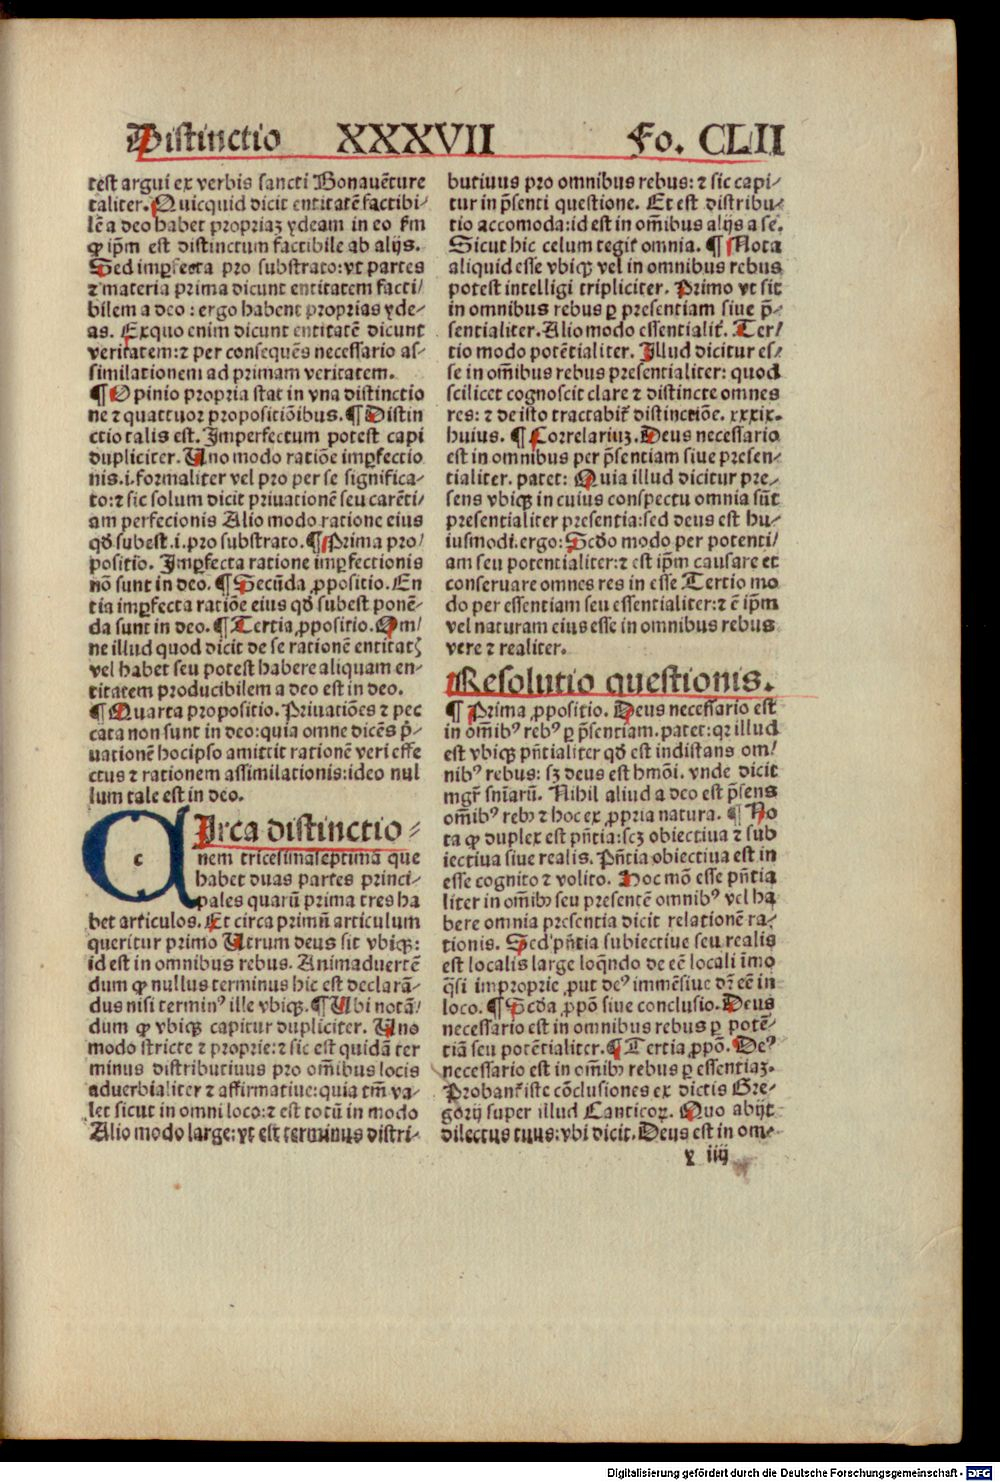 Distinctio XXXVII Fo. CLII
test argui ex verbis sancti Bonauẽture
taliter. Quicquid dicit entitatẽ factibi⸗
lẽ a deo habet propriaꝫ ydeam in eo ẜm
ꝙ ip̃m est distinctum factibile ab alijs.
Sed imꝑfecta pro substrato: vt partes
⁊ materia prima dicunt entitatem facti/
bilem a deo : ergo habent proprias yde⸗
as. Exquo enim dicunt entitatẽ dicunt
veritatem: ⁊ per consequẽs necessario as⸗
similationem ad primam veritatem.
¶ Opinio propria stat in vna distinctio
ne ⁊ quattuor propositiõibus. ¶ Distin
ctio talis est. Imperfectum potest capi
dupliciter. Uno modo ratiõe imꝑfectio
nis .i. formaliter vel pro per se significa⸗
to: ⁊ sic solum dicit priuationẽ seu carẽti/
am perfecionis Alio modo ratione eius
qd̃ subest .i. pro substrato. ¶ Prima pro/
positio. Imꝑfecta ratione imꝑfectionis
nõ sunt in deo. ¶ Secũda ꝓpositio. En
tia imꝑfecta ratiõe eius qd̃ subest ponẽ⸗
da sunt in deo. ¶ Tertia ꝓpositio. Om/
ne illud quod dicit de se rationẽ entitatꝭ
vel habet seu potest habere aliquam en⸗
titatem producibilem a deo est in deo.
¶ Quarta propositio. Priuatiões ⁊ pec
cata non sunt in deo: quia omne dicẽs p̃i⸗
uationẽ hocipso amittit rationẽ veri effe
ctus ⁊ rationem assimilationis: ideo nul
lum tale est in deo.
c Irca distinctio⸗
nem tricesimaseptimã que
habet duas partes princi⸗
pales quarũ prima tres ha
bet articulos. Et circa primũ articulum
queritur primo Utrum deus sit vbiqꝫ:
id est in omnibus rebus. Animaduertẽ
dum ꝙ nullus terminus hic est declarã⸗
dus nisi terminꝰ ille vbiqꝫ. ¶ Ubi notã/
dum ꝙ vbiqꝫ capitur dupliciter. Uno
modo stricte ⁊ proprie: ⁊ sic est quidã ter
minus distributiuus pro om̃ibus locis
aduerbialiter ⁊ affirmatiue: quia tm̃ va⸗
let sicut in omni loco: ⁊ est totũ in modo
Alio modo large: vt est terminus distri⸗
butiuus pro omnibus rebus: ⁊ sic capi⸗
tur in p̃senti questione. Et est distribu⸗
tio accomoda: id est in om̃ibus alijs a se.
Sicut hic celum tegit omnia. ¶ Nota
aliquid esse vbiqꝫ vel in omnibus rebus
potest intelligi tripliciter. Primo vt sit
in omnibus rebus ꝑ presentiam siue p̃⸗
sentialiter. Alio modo essentialiter̃. Ter/
tio modo potẽtialiter. Illud dicitur es⸗
se in om̃ibus rebus presentialiter: quod
scilicet cognoscit clare ⁊ distincte omnes
res: ⁊ de isto tractabit̃ distinctiõe. xxxix.
huius. ¶ Correlariuꝫ. Deus necessario
est in omnibus per p̃sentiam siue presen⸗
tialiter. patet: Quia illud dicitur pre⸗
sens vbiqꝫ in cuius conspectu omnia sũt
presentialiter presentia: sed deus est hu⸗
iusmodi. ergo: Scd̃o modo per potenti/
am seu potentialiter: ⁊ est ip̃m causare et
conseruare omnes res in esse Tertio mo
do per essentiam seu essentialiter: ⁊ ẽ ip̃m
vel naturam eius esse in omnibus rebus
vere ⁊ realiter.
Resolutio questionis.
¶ Prima ꝓpositio. Deus necessario est
in om̃ibꝰ rebꝰ ꝑ p̃sentiam. patet: qꝛ illud
est vbiqꝫ pñtialiter qd̃ est indistans om/
nibꝰ rebus: sꝫ deus est hmõi. vnde dicit
mgr̃ sñiarũ. Nihil aliud a deo est p̃sens
om̃ibꝰ rebꝰ ⁊ hoc ex ꝓpria natura. ¶ No
ta ꝙ duplex est pñtia: scꝫ obiectiua ⁊ sub
iectiua siue realis. Pñtia obiectiua est in
esse cognito ⁊ volito. Hoc mõ esse pñtia
liter in om̃ibꝰ seu presentẽ omnibꝰ vel ha
bere omnia presentia dicit relationẽ ra⸗
tionis. Sed pñtia subiectiue seu realis
est localis large loq̃ndo de eẽ locali ĩmo
q̃si improprie ꝓut deꝰ immẽsiue dr̃ eẽ in
loco. ¶ Scd̃a ꝓpõ siue conclusio. Deus
necessario est in omnibus rebus ꝑ potẽ⸗
tiã seu potẽtialiter. ¶ Tertia ꝓpõ. Deꝰ
necessario est in om̃ibꝰ rebus ꝑ essentiaꝫ.
Probant̃ iste cõclusiones ex dictis Gre⸗
gorij super illud Canticoꝝ. Quo abijt
dilectus tuus: vbi dicit. Deus est in om⸗
x iiij
Digitalisierung gefördert durch die Deutsche Forschungsgemeinschaft - DFG